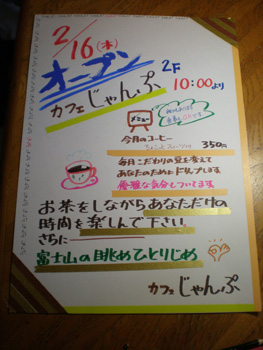 2/16(木)
オープン 2F
カフェじゃんぷ 10:00より
メニュー
今月のコーヒー 350円
毎月こだわりの豆を変えて
あなたのためにドリップします
優雅な気分もついてます
お茶をしながらあなただけの
時間を楽しんで下さい。
さらに
富士山の眺めひとりじめ
カフェじゃんぷ